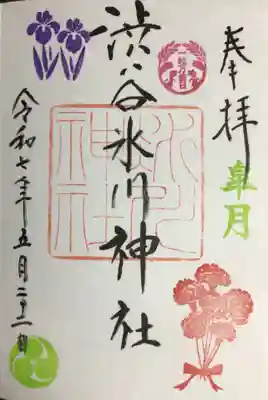 奉拝
皐月
渋谷氷川神社
氷川神社
令和七年五月二十一日